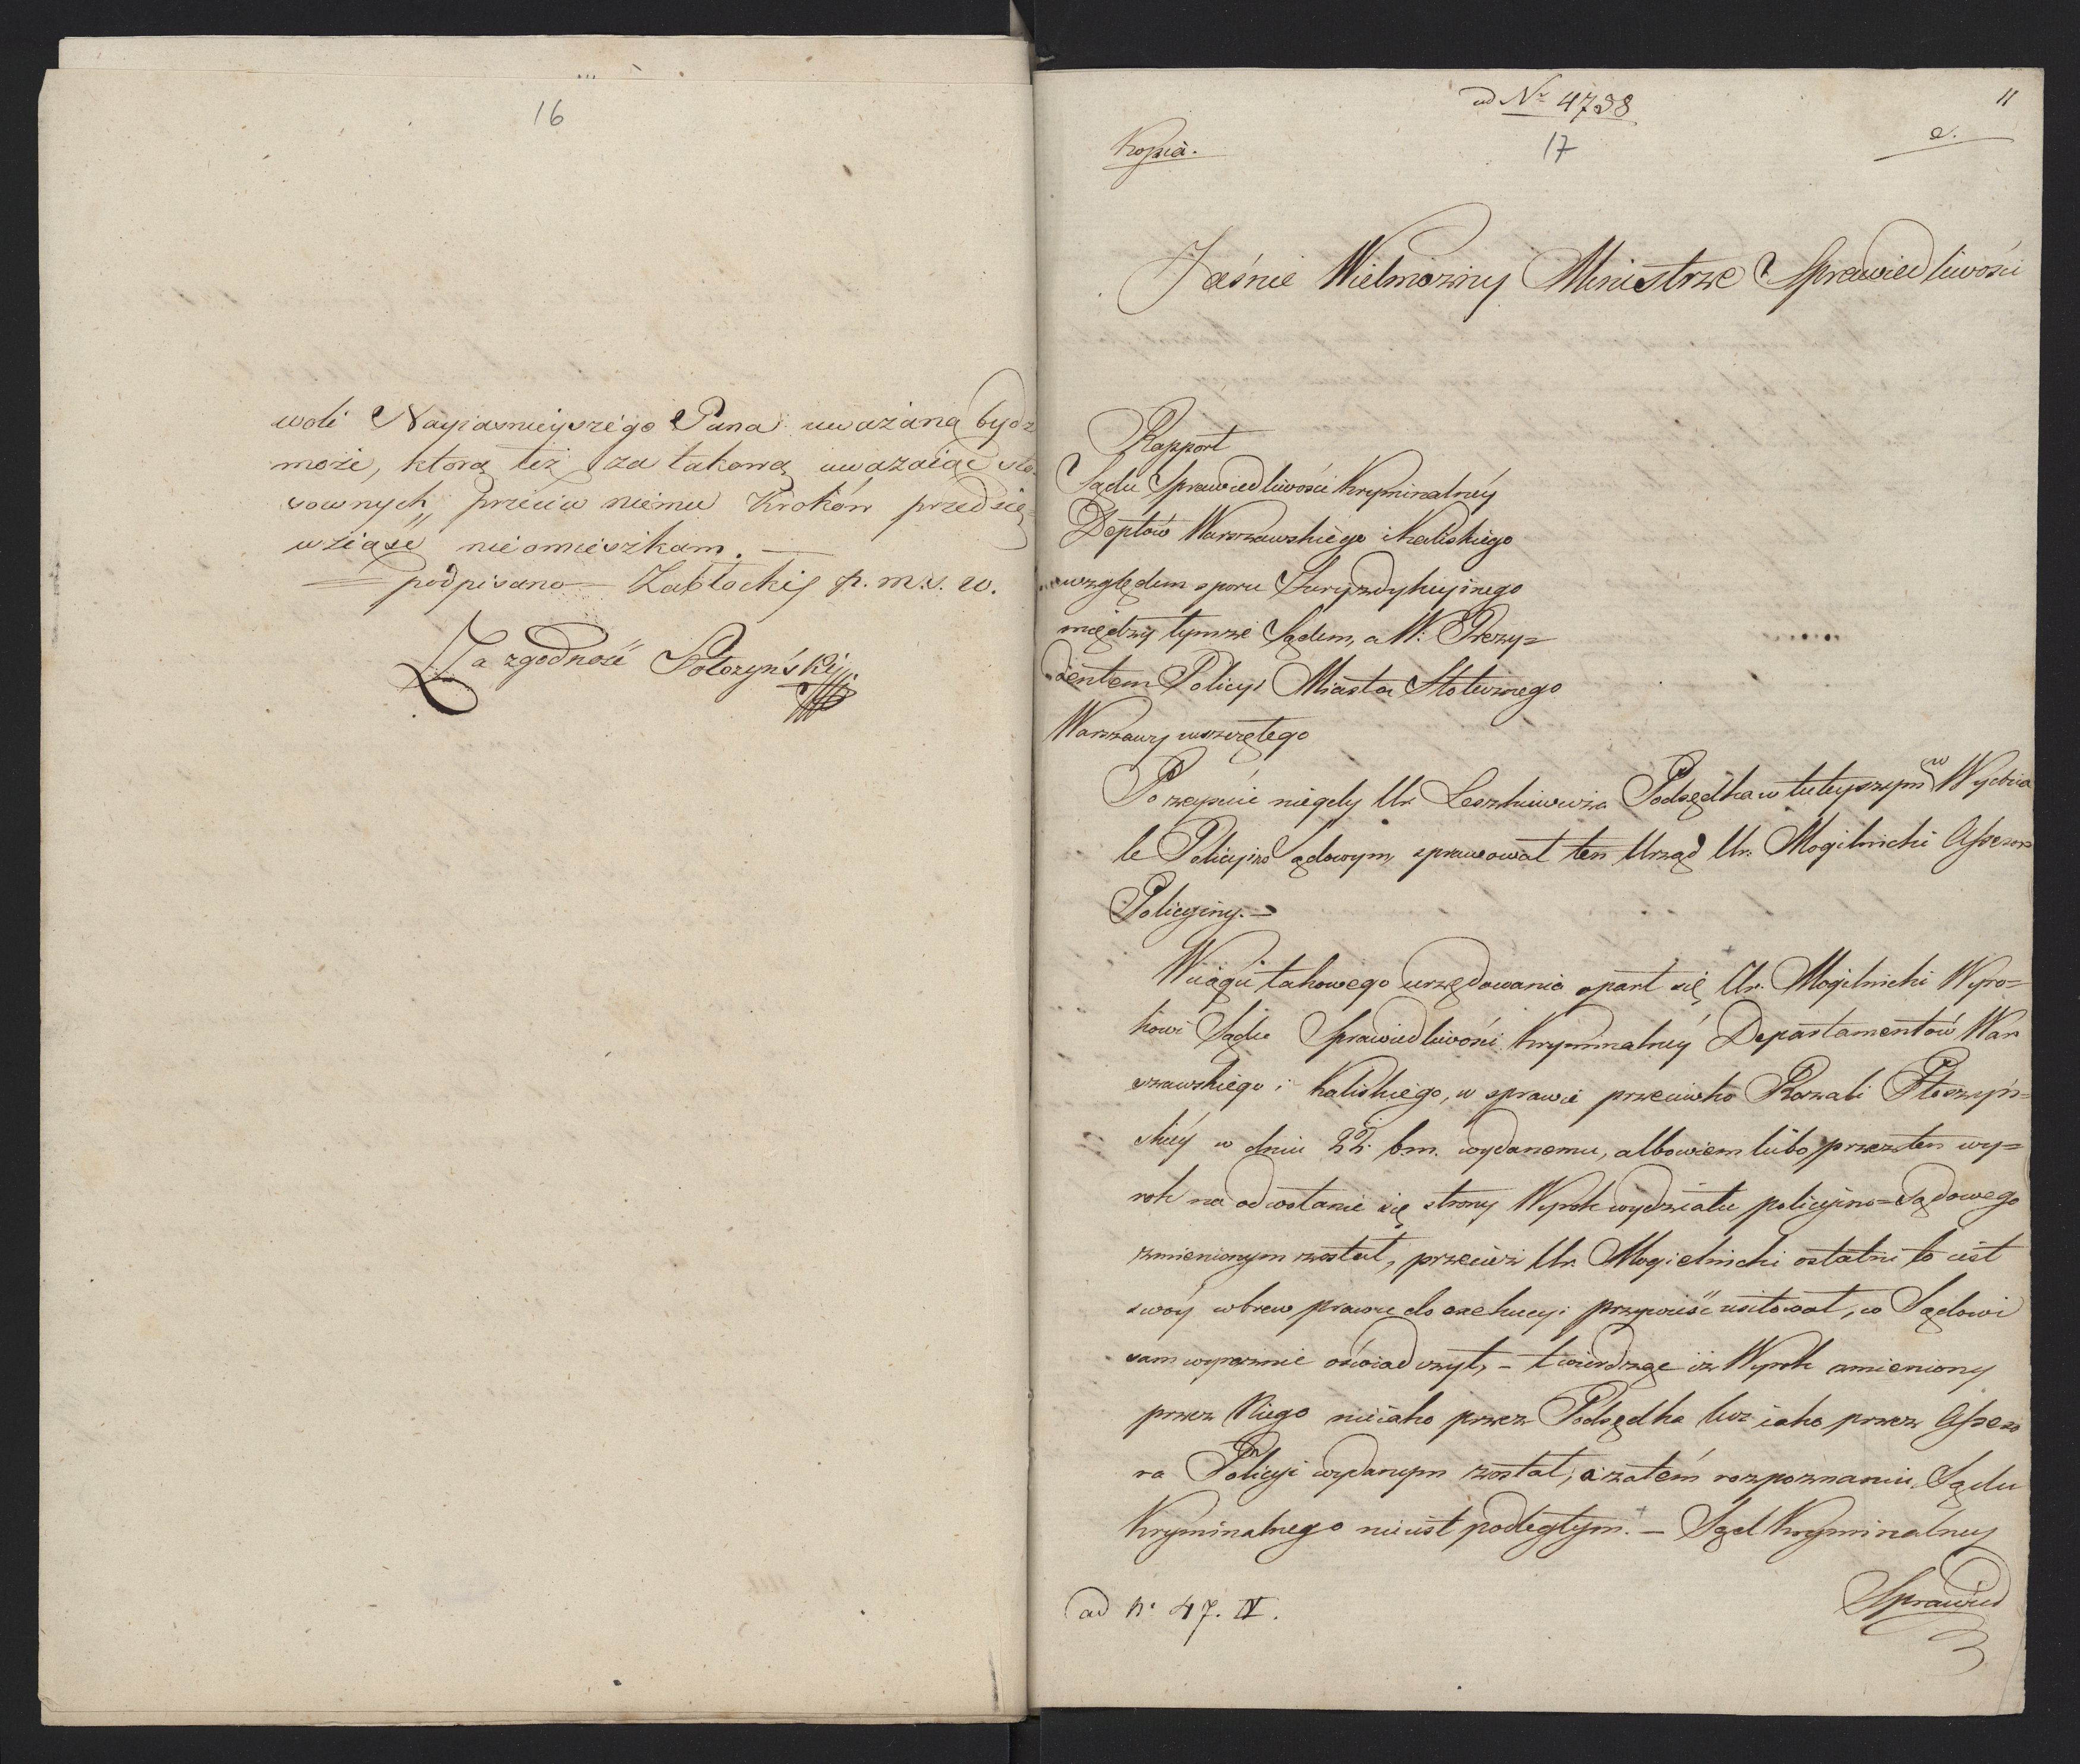 16
woli Nayiasnieyszego Pana uwazaną bydz
może, ktorą też za takową uważaiąc sto
sownych przeciw niemu Krokow przedsię
wziąść nieomieszkam. —
podpisano — Zabłockiy p. m. s. w.
Za zgodność
ad Nr. 4738
11
17
e.
Kopia.
Jaśnie Wielmożny Ministrze Sprawiedliwości
Rapport
Sądu Sprawiedliwości Kryminalnéy
Deptów Warszawskiego i Kaliskiego
względem sporu Juryzdykcyinego
między tymże Sądem, a W: Prezy=
dentem Policyi Miasta Stołecznego
Warszawy wszczętego
Po zeyściu niegdy Ur. Leszkiewicza Podsędka w tuteyszym w Wydzia
le Policyino Sądowym, sprawował ten Urząd Ur. Mogilnicki Assessor
Policyiny. —
W ciągu takowego urzędowania oparł się Ur. Mogilnicki Wyro=
kowi Sądu Sprawiedliwości Kryminalnéy Departamentów War
szawskiego i Kaliskiego, w sprawie przeciwko Rozalii Płoszyń=
skiéy w dniu 22. b.m. wydanemu, albowiem lubo przez ten wy=
rok na odwołanie się strony Wyrok wydziału policyino=Sądowego
zmienionym został, przecież Ur. Mogielnicki ostatni to iest
swóy wbrew prawu do exekucyi przywieść usiłował, co Sądowi
sam wyraznie oświadczył, — twierdząc iż Wyrok zmieniony
przez Niego nieiako przez Podsędka lecz iako przez Assesso
ra Policyi wydanym został, a zatém rozpoznaniu Sądu
Kryminalnego nieiest podległym. — Sąd Kryminalney
Sprawied
ad N: 47. IV.